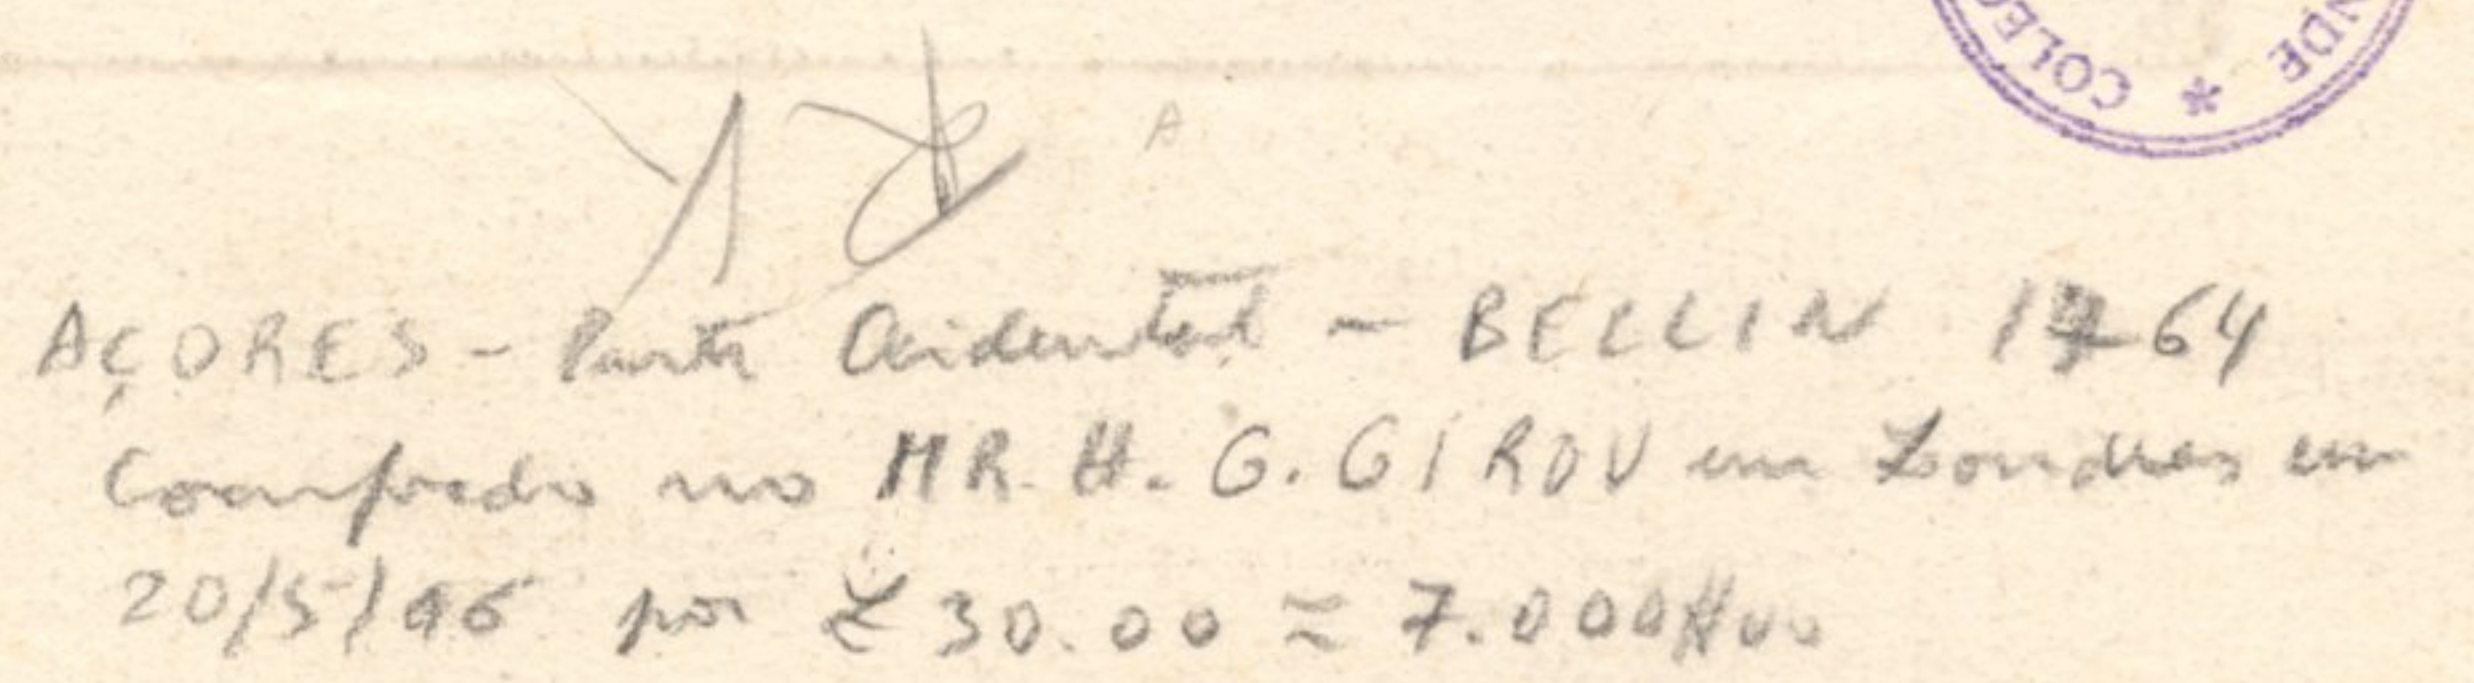 COLEC * NDE
A
AÇORES - Parte Ocidental - BELLIN 1764
Comprado no MR. H. G. GIROU em Londres em
20/5/96 por £30.00 ≈ 7.000$00